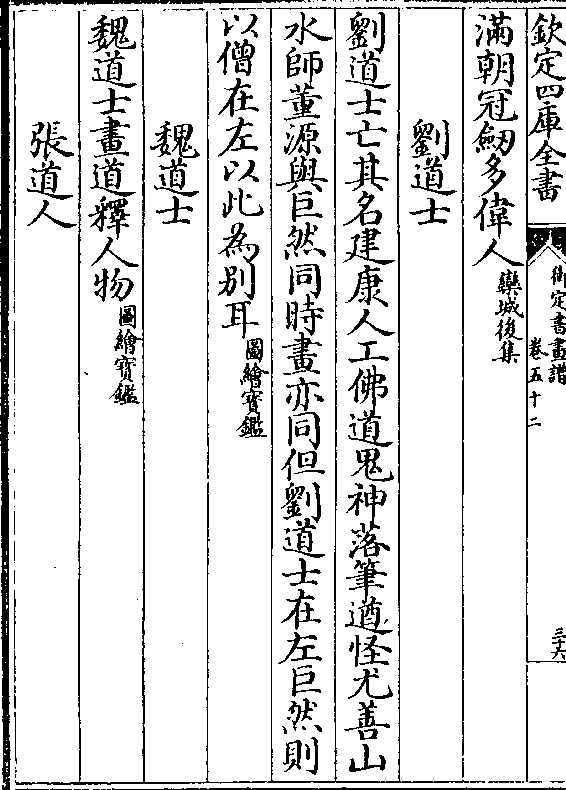 欽定四庫全書
御定書畫譜
卷五十二
三十六
滿朝冠劒多偉人欒城後集
劉道士
劉道士亡其名建康人工佛道鬼神落筆遒怪尤善山
水師董源與巨然同時畫亦同但劉道士在左巨然則
以僧在左以此為別耳圖繪寳鑑
魏道士
魏道士畫道釋人物圖繪寳鑑
張道人